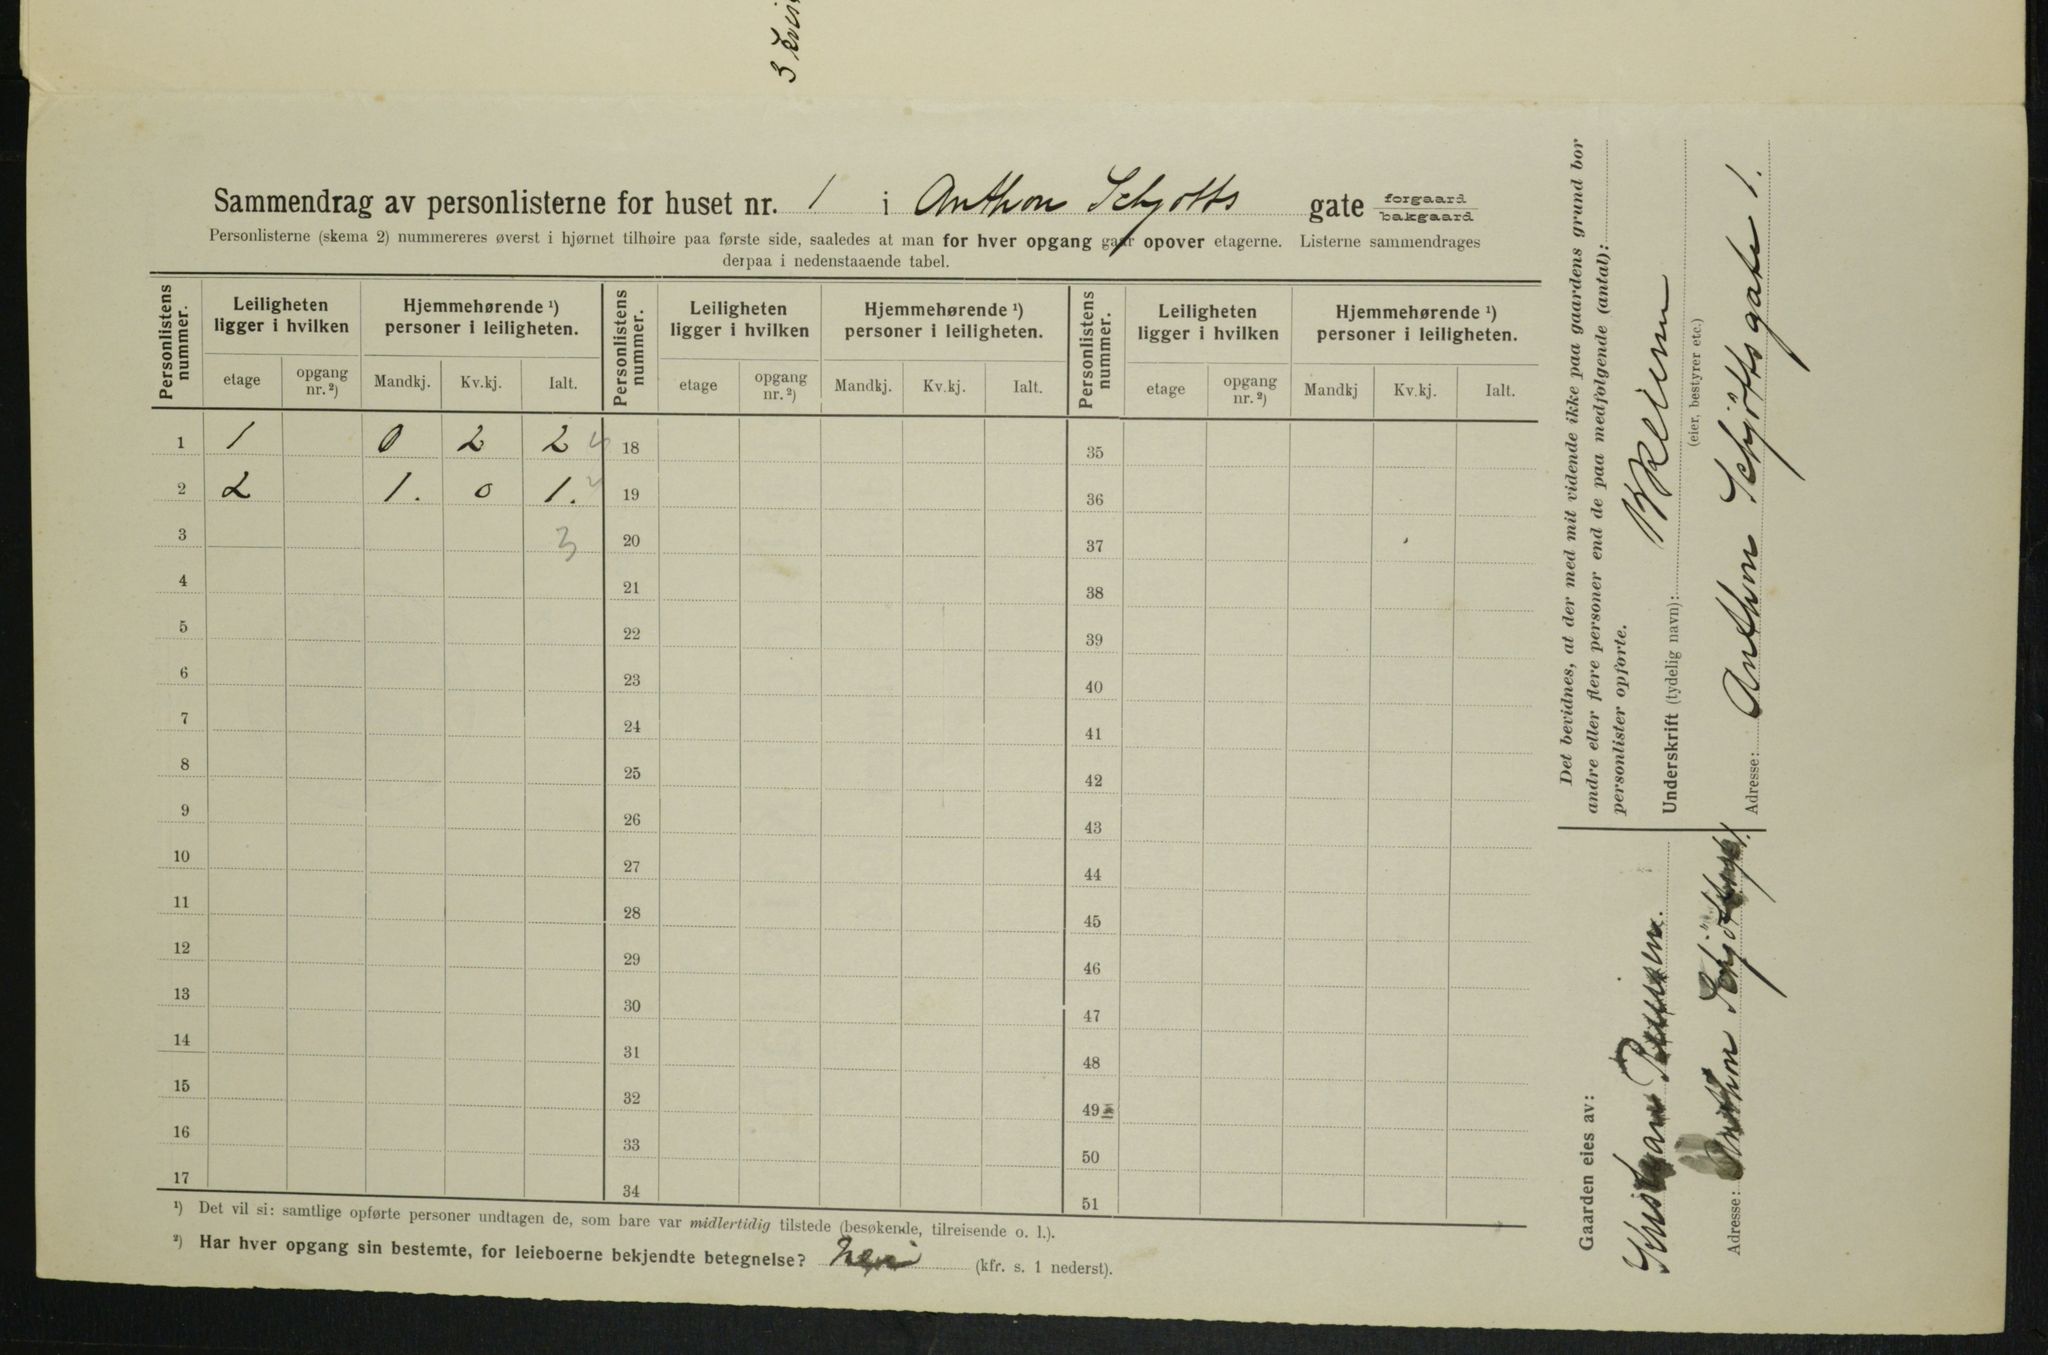 3 kvi
Sammendrag av personlisterne for huset nr. 1 i Anthon Schjøtts gate forgaard
bakgaard
Personlisterne (skema 2) nummereres øverst i hjørnet tilhøire paa første side, saaledes at man for hver opgang gaar opover etagerne. Listerne sammendrages
derpaa i nedenstaaende tabel.
Personlistens nummer. Leiligheten ligger i hvilken Hjemmehørende ¹) personer i leiligheten. Personlistens nummer. Leiligheten ligger i hvilken Hjemmehørende ¹) personer i leiligheten. Personlistens nummer. Leiligheten ligger i hvilken Hjemmehørende ¹) personer i leiligheten.
etage opgang nr. ²) Mandkj. Kv.kj. Ialt. etage opgang nr. ²) Mandkj. Kv.kj. Ialt. etage opgang nr. ²) Mandkj Kv.kj. Ialt.
1 1 0 2 2 18 35
2 2 1. 0 1. 19 36
3 3 20 37
4 21 38
5 22 39
6 23 40
7 24 41
8 25 42
9 26 43
10 27 44
11 28 45
12 29 46
13 30 47
14 31 48
15 32 49
16 33 50
17 34 51
¹) Det vil si: samtlige opførte personer undtagen de, som bare var midlertidig tilstede (besøkende, tilreisende o. l.).
²) Har hver opgang sin bestemte, for leieboerne bekjendte betegnelse? Nei (kfr. s. 1 nederst).
Det bevidnes, at der med mit vidende ikke paa gaardens grund bor
andre eller flere personer end de paa medfølgende (antal):
personlister opførte.
Underskrift (tydelig navn):
(eier, bestyrer etc.)
Adresse: Anthon Schjøttsgate 1.
Gaarden eies av:
Adresse: Anthon Schjøttsgt 1.